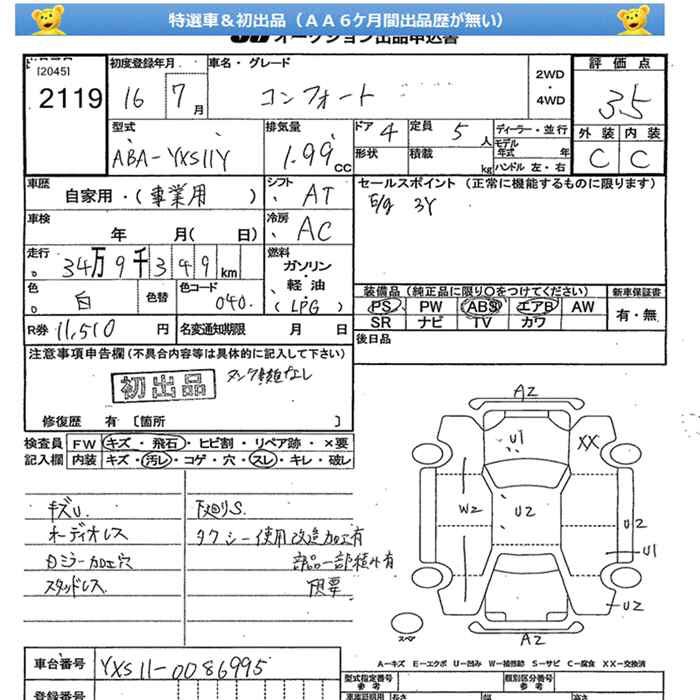 特選車&初出品(AA6ケ月間出品歴が無い)
オークション出品申込書
[2045]
2119
初度登録年月
16 7月
車名・グレード
コンフォート
2WD
・
4WD
評価点
3.5
外装 内装
C C
型式
ABA-YXS11Y
排気量
1.99 CC
ドア 4
定員 5 人
形状
積載 kg
ディーラー・並行
モデル年式 年
ハンドル 左・右
車歴
自家用・(事業用 )
シフト AT
車検
年 月( 日)
冷房 AC
セールスポイント(正常に機能するものに限ります)
E/g 3Y
走行
34万9千349km
燃料
ガソリン
・
軽油
(LPG)
色 白
色替
色コード 040
R券 11,510 円
名変通知期限 月 日
装備品(純正品に限り○をつけてください)
PS PW ABS エアB AW
SR ナビ TV カワ
新車保証書
有・無
後日品
注意事項申告欄(不具合内容等は具体的に記入して下さい)
初出品
修復歴 有 [箇所 ]
検査員記入欄
FW キズ・飛石・ヒビ割・リペア跡・×要
内装 キズ・汚レ・コゲ・穴・スレ・キレ・破レ
キズU.
オーディオレス
スタッドレス
下廻りS.
タクシー使用改造加工有
部品一部積み有
A2
U1
XX
W2
U2
U2
U1
U2
A2
スペア
A-キズ E-エクボ U-凹み W-補修跡 S-サビ C-腐食 XX-交換済
車台番号
YXS11-0086995
型式指定番号
参考
類別区分番号
参考
登録番号